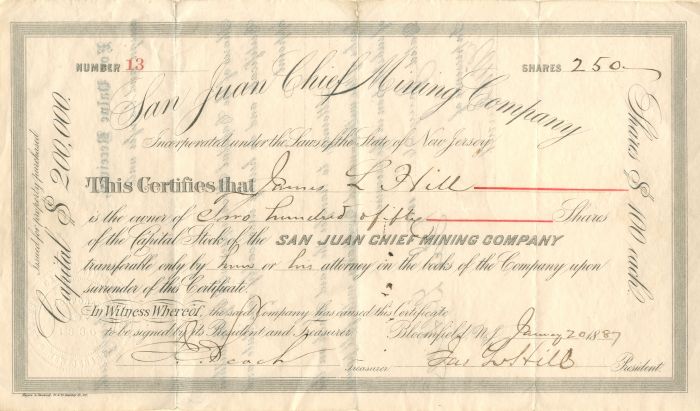 NUMBER 13
SHARES 250
San Juan Chief Mining Company
Incorporated under the Laws of the State of New Jersey
Issued for property purchased
Capital $200,000.
Shares $100 each.
This Certifies that James L Hill
is the owner of Two hundred & fifty Shares
of the Capital Stock of the SAN JUAN CHIEF MINING COMPANY
transferable only by him or his attorney on the books of the Company upon
surrender of this Certificate.
In Witness Whereof, the said Company has caused this Certificate
to be signed by its President and Treasurer
Bloomfield N.J. 20 1887
Treasurer
Jas L Hill President.